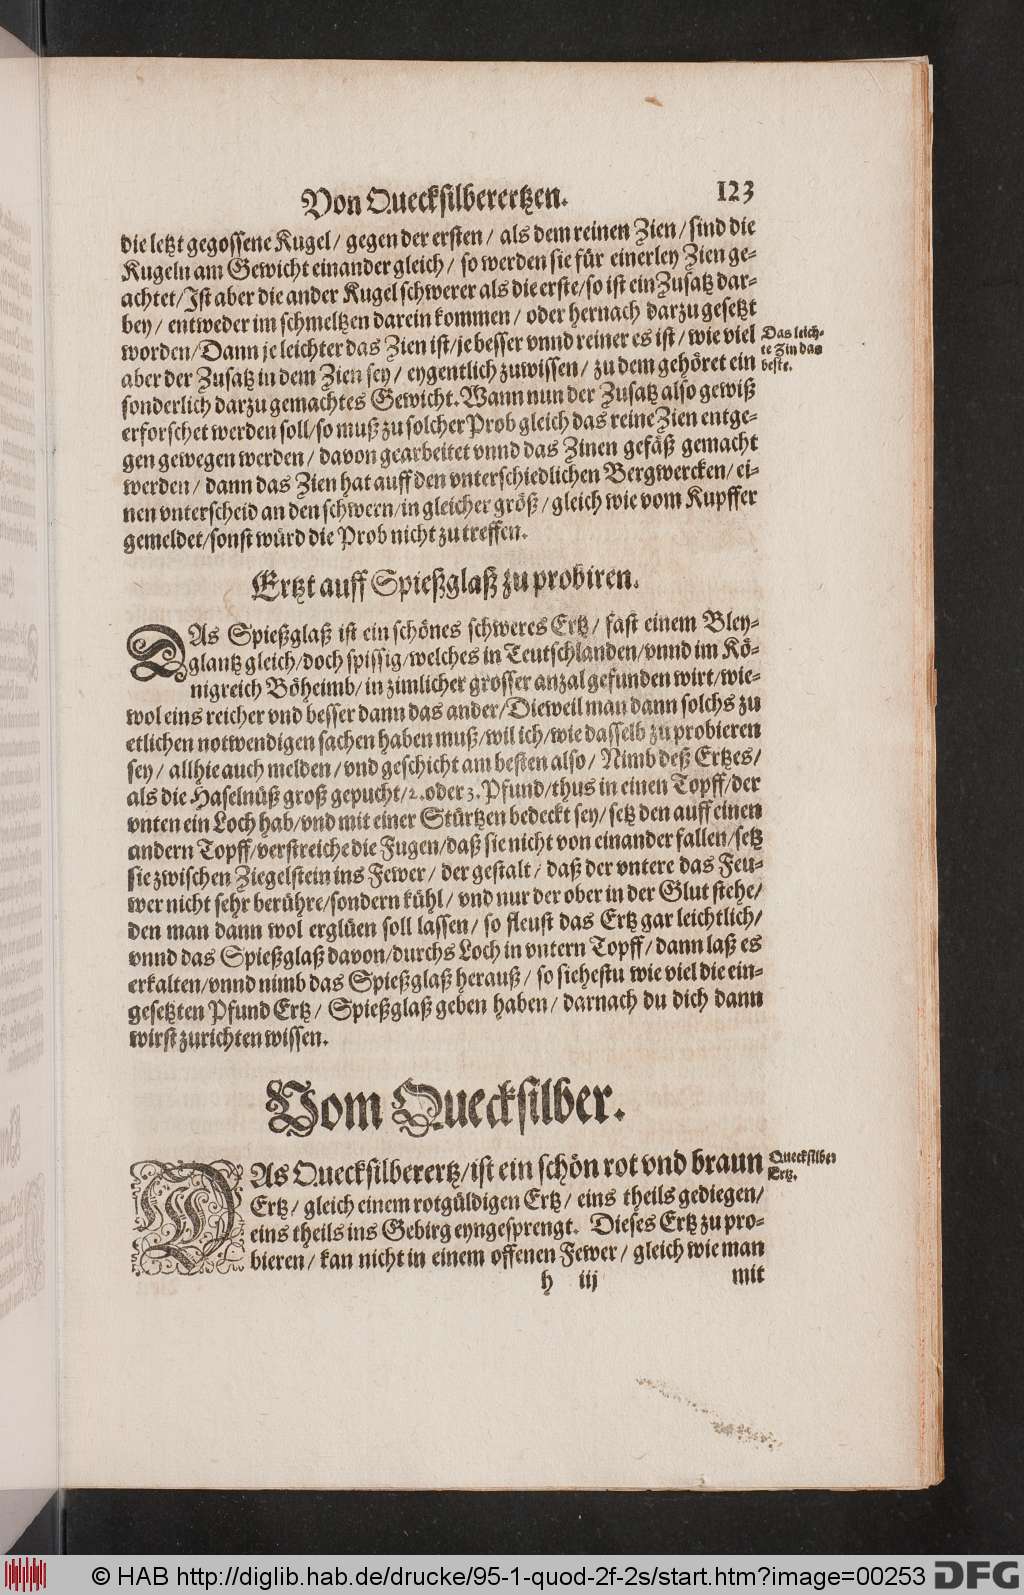 Von Quecksilberertzen. 123
die letzt gegossene Kugel/ gegen der ersten/ als dem reinen Zien/ sind die
Kugeln am Gewicht einander gleich/ so werden sie für einerley Zien ge-
achtet/Ist aber die ander Kugel schwerer als die erste/so ist ein Zusatz dar-
bey/ entweder im schmeltzen darein kommen/ oder hernach darzu gesetzt
worden/Dann je leichter das Zien ist/je besser vnnd reiner es ist/ wie viel
Das leich-
te Zin das
beste.
aber der Zusatz in dem Zien sey/ eygentlich zuwissen/ zu dem gehöret ein
sonderlich darzu gemachtes Gewicht. Wann nun der Zusatz also gewiß
erforschet werden soll/so muß zu solcher Prob gleich das reine Zien entge-
gen gewegen werden/ davon gearbeitet vnnd das Zinen gefäß gemacht
werden/ dann das Zien hat auff den vnterschiedlichen Bergwercken/ ei-
nen vnterscheid an den schwern/in gleicher größ/ gleich wie vom Kupffer
gemeldet/sonst würd die Prob nicht zu treffen.
Ertzt auff Spießglaß zu probiren.
DAs Spießglaß ist ein schönes schweres Ertz/ fast einem Bley-
glantz gleich/doch spissig/welches in Teutschlanden/vnnd im Kö-
nigreich Böheimb/ in zimlicher grosser anzal gefunden wirt/wie-
wol eins reicher vnd besser dann das ander/Dieweil man dann solchs zu
etlichen notwendigen sachen haben muß/wil ich/wie dasselb zu probieren
sey/ allhie auch melden/ vnd geschicht am besten also/ Nimb deß Ertzes/
als die Haselnüß groß gepucht/2. oder 3. Pfund/thus in einen Topff/der
vnten ein Loch hab/vnd mit einer Stürtzen bedeckt sey/ setz den auff einen
andern Topff/verstreiche die Fugen/daß sie nicht von einander fallen/setz
sie zwischen Ziegelstein ins Fewer/ der gestalt/ daß der vntere das Feu-
wer nicht sehr berühre/sondern kühl/ vnd nur der ober in der Glut stehe/
den man dann wol erglüen soll lassen/ so fleust das Ertz gar leichtlich/
vnnd das Spießglaß davon/durchs Loch in vntern Topff/ dann laß es
erkalten/vnnd nimb das Spießglaß herauß/ so siehestu wie viel die ein-
gesetzten Pfund Ertz/ Spießglaß geben haben/ darnach du dich dann
wirst zurichten wissen.
Vom Quecksilber.
DAs Quecksilberertz/ist ein schön rot vnd braun
Quecksilber
Ertz.
Ertz/ gleich einem rotgüldigen Ertz/ eins theils gediegen/
eins theils ins Gebirg eyngesprengt. Dieses Ertz zu pro-
bieren/ kan nicht in einem offenen Fewer/ gleich wie man
h iij mit
© HAB http://diglib.hab.de/drucke/95-1-quod-2f-2s/start.htm?image=00253 DFG